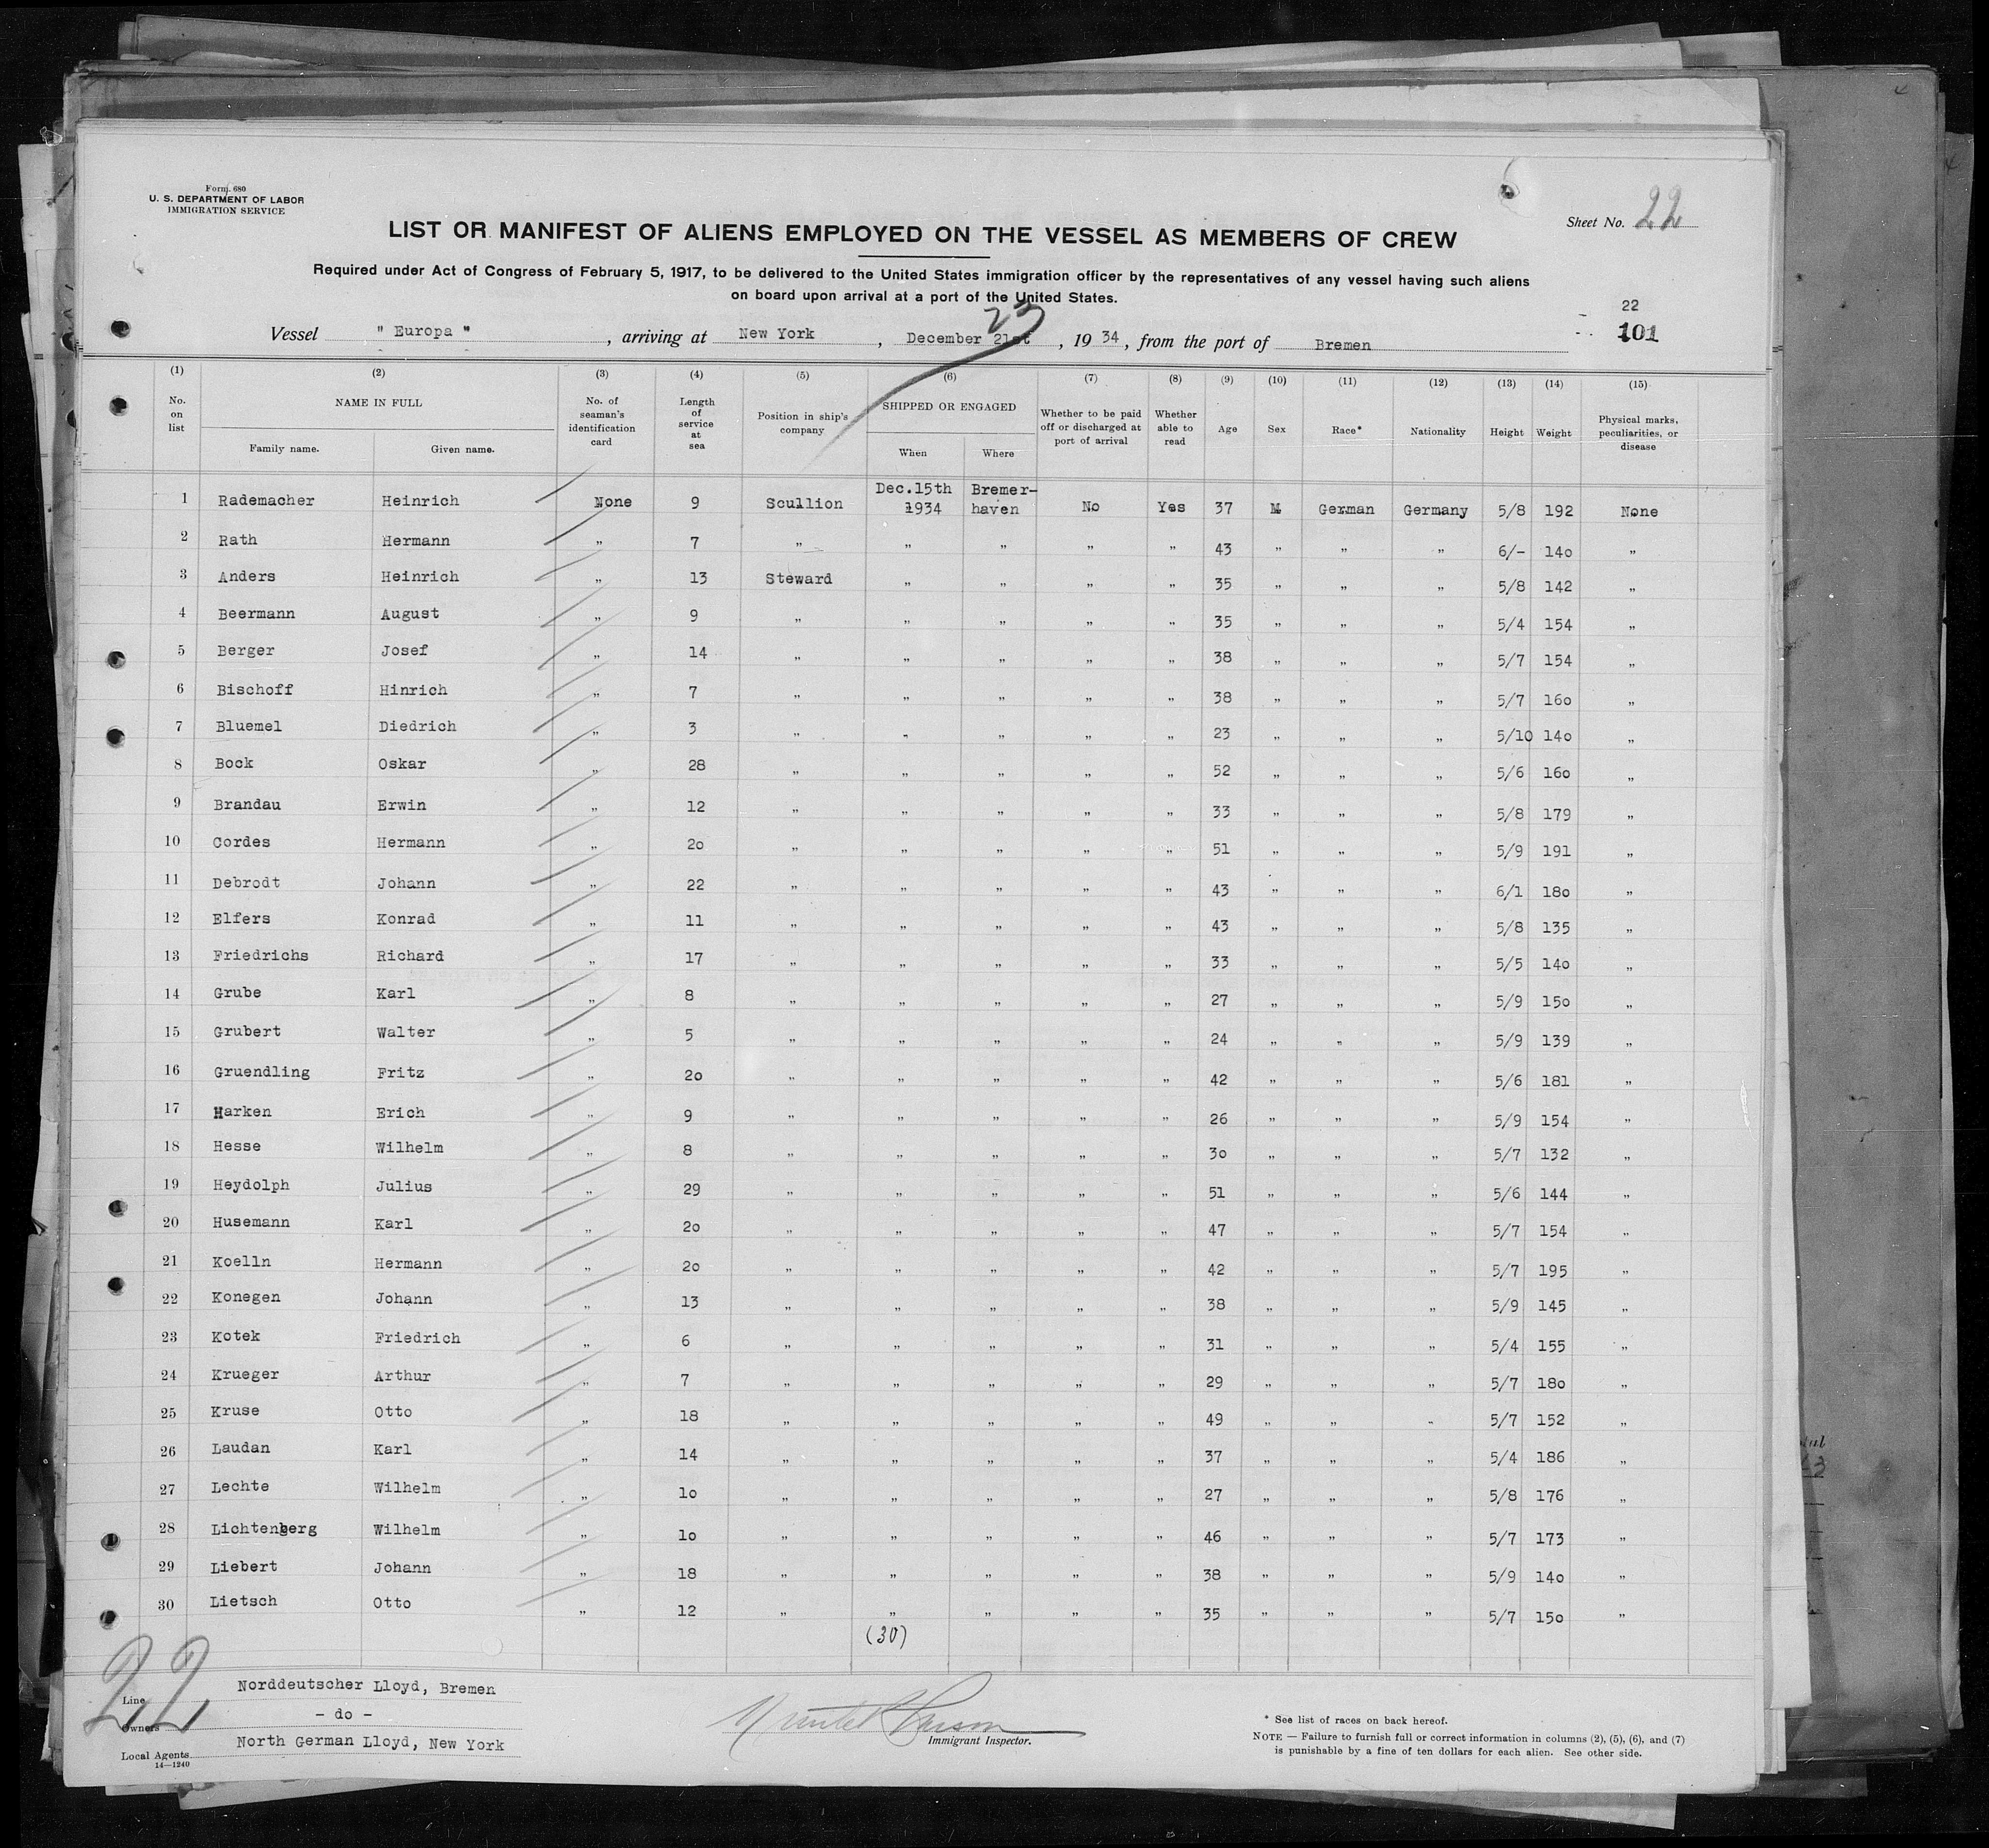 Form 680
U. S. DEPARTMENT OF LABOR
IMMIGRATION SERVICE
Sheet No. 22
LIST OR MANIFEST OF ALIENS EMPLOYED ON THE VESSEL AS MEMBERS OF CREW
Required under Act of Congress of February 5, 1917, to be delivered to the United States immigration officer by the representatives of any vessel having such aliens
on board upon arrival at a port of the United States.
22
101
23
Vessel " Europa " , arriving at New York , December 21st , 19 34 , from the port of Bremen
(1) (2) (3) (4) (5) (6) (7) (8) (9) (10) (11) (12) (13) (14) (15)
No. on list NAME IN FULL Family name. Given name. No. of seaman's identification card Length of service at sea Position in ship's company SHIPPED OR ENGAGED When Where Whether to be paid off or discharged at port of arrival Whether able to read Age Sex Race* Nationality Height Weight Physical marks, peculiarities, or disease
1 Rademacher Heinrich None 9 Scullion Dec.15th 1934 Bremer-haven No Yes 37 M German Germany 5/8 192 None
2 Rath Hermann „ 7 „ „ „ „ „ 43 „ „ „ 6/- 140 „
3 Anders Heinrich „ 13 Steward „ „ „ „ 35 „ „ „ 5/8 142 „
4 Beermann August „ 9 „ „ „ „ „ 35 „ „ „ 5/4 154 „
5 Berger Josef „ 14 „ „ „ „ „ 38 „ „ „ 5/7 154 „
6 Bischoff Hinrich „ 7 „ „ „ „ „ 38 „ „ „ 5/7 160 „
7 Bluemel Diedrich „ 3 „ „ „ „ „ 23 „ „ „ 5/10 140 „
8 Bock Oskar „ 28 „ „ „ „ „ 52 „ „ „ 5/6 160 „
9 Brandau Erwin „ 12 „ „ „ „ „ 33 „ „ „ 5/8 179 „
10 Cordes Hermann „ 20 „ „ „ „ „ 51 „ „ „ 5/9 191 „
11 Debrodt Johann „ 22 „ „ „ „ „ 43 „ „ „ 6/1 180 „
12 Elfers Konrad „ 11 „ „ „ „ „ 43 „ „ „ 5/8 135 „
13 Friedrichs Richard „ 17 „ „ „ „ „ 33 „ „ „ 5/5 140 „
14 Grube Karl „ 8 „ „ „ „ „ 27 „ „ „ 5/9 150 „
15 Grubert Walter „ 5 „ „ „ „ „ 24 „ „ „ 5/9 139 „
16 Gruendling Fritz „ 20 „ „ „ „ „ 42 „ „ „ 5/6 181 „
17 Harken Erich „ 9 „ „ „ „ „ 26 „ „ „ 5/9 154 „
18 Hesse Wilhelm „ 8 „ „ „ „ „ 30 „ „ „ 5/7 132 „
19 Heydolph Julius „ 29 „ „ „ „ „ 51 „ „ „ 5/6 144 „
20 Husemann Karl „ 20 „ „ „ „ „ 47 „ „ „ 5/7 154 „
21 Koelln Hermann „ 20 „ „ „ „ „ 42 „ „ „ 5/7 195 „
22 Konegen Johann „ 13 „ „ „ „ „ 38 „ „ „ 5/9 145 „
23 Kotek Friedrich „ 6 „ „ „ „ „ 31 „ „ „ 5/4 155 „
24 Krueger Arthur „ 7 „ „ „ „ „ 29 „ „ „ 5/7 180 „
25 Kruse Otto „ 18 „ „ „ „ „ 49 „ „ „ 5/7 152 „
26 Laudan Karl „ 14 „ „ „ „ „ 37 „ „ „ 5/4 186 „
27 Lechte Wilhelm „ 10 „ „ „ „ „ 27 „ „ „ 5/8 176 „
28 Lichtenberg Wilhelm „ 10 „ „ „ „ „ 46 „ „ „ 5/7 173 „
29 Liebert Johann „ 18 „ „ „ „ „ 38 „ „ „ 5/9 140 „
30 Lietsch Otto „ 12 „ „ „ „ „ 35 „ „ „ 5/7 150 „
(30)
22
Line Norddeutscher Lloyd, Bremen
Owners - do -
Local Agents North German Lloyd, New York
14—1240
Immigrant Inspector.
* See list of races on back hereof.
NOTE — Failure to furnish full or correct information in columns (2), (5), (6), and (7)
is punishable by a fine of ten dollars for each alien. See other side.